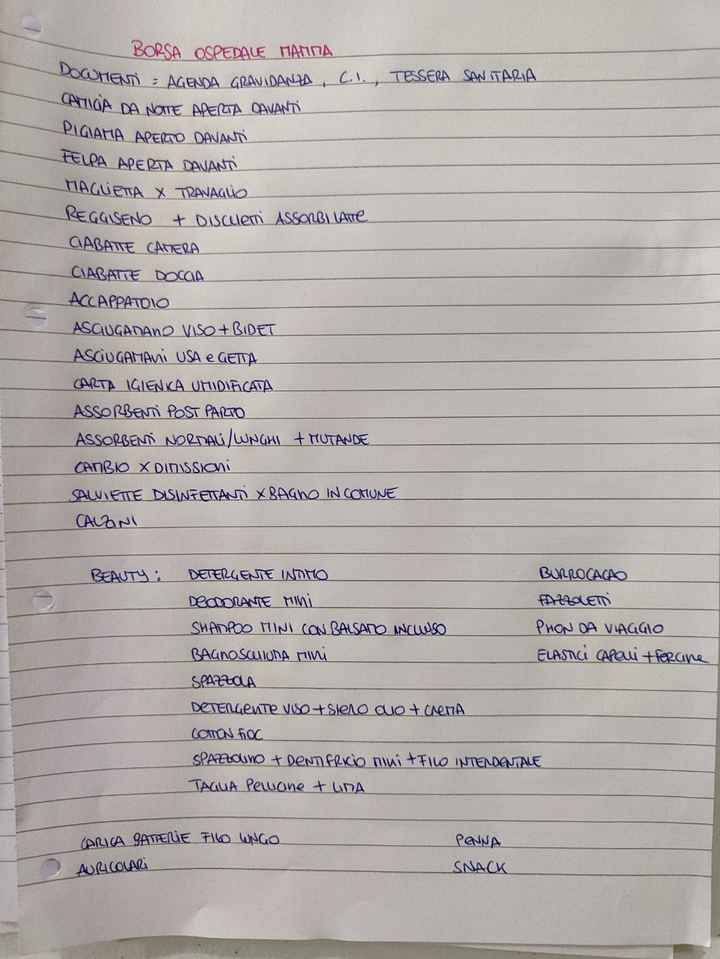 BORSA OSPEDALE MAMMA
DOCUMENTI = AGENDA GRAVIDANZA, C.I., TESSERA SANITARIA
CAMICIA DA NOTTE APERTA DAVANTI
PIGIAMA APERTO DAVANTI
FELPA APERTA DAVANTI
MAGLIETTA X TRAVAGLIO
REGGISENO + DISCHETTI ASSORBILATTE
CIABATTE CAMERA
CIABATTE DOCCIA
ACCAPPATOIO
ASCIUGAMANO VISO + BIDET
ASCIUGAMANI USA e GETTA
CARTA IGIENICA UMIDIFICATA
ASSORBENTI POST PARTO
ASSORBENTI NORMALI/LUNGHI + MUTANDE
CAMBIO X DIMISSIONI
SALVIETTE DISINFETTANTI X BAGNO IN COMUNE
CALZINI
BEAUTY: DETERGENTE INTIMO BURROCACAO
DEODORANTE MINI FAZZOLETTI
SHAMPOO MINI CON BALSAMO INCLUSO PHON DA VIAGGIO
BAGNOSCHIUMA MINI ELASTICI CAPELLI + FORCINE
SPAZZOLA
DETERGENTE VISO + SIERO OLIO + CREMA
COTTON FIOC
SPAZZOLINO + DENTIFRICIO MINI + FILO INTERDENTALE
TAGLIA PELLICINE + LIMA
CARICA BATTERIE FILO LUNGO PENNA
AURICOLARI SNACK